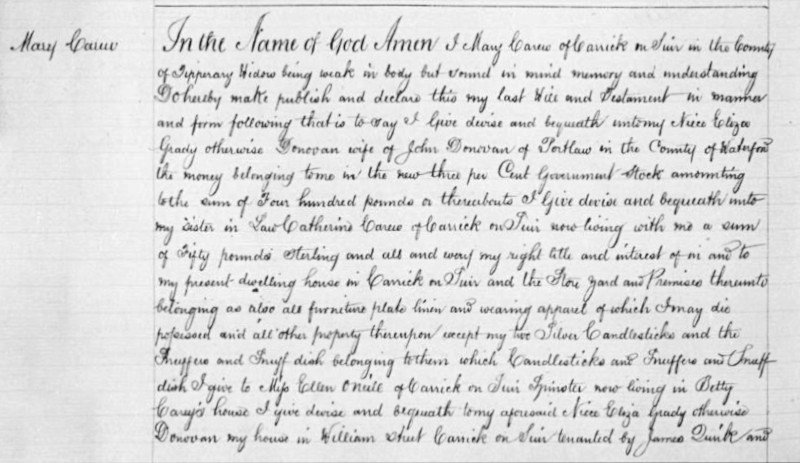 Mary Carew
In the Name of God Amen I Mary Carew of Carrick on Suir in the County
of Tipperary Widow being weak in body but sound in mind memory and understanding
Do hereby make publish and declare this my last Will and Testament in manner
and form following that is to say I Give devise and bequeath unto my Niece Eliza
Grady otherwise Donovan wife of John Donovan of Portlaw in the County of Waterford
the money belonging to me in the new three per Cent Government Stock amounting
to the sum of Four hundred pounds or thereabouts I Give devise and bequeath unto
my Sister in Law Catherine Carew of Carrick on Suir now living with me a sum
of Fifty pounds Sterling and all and every my right title and interest of in and to
my present dwelling house in Carrick on Suir and the Store Yard and Premises thereunto
belonging as also all furniture plate linen and wearing apparel of which I may die
possessed and all other property thereupon except my two Silver Candlesticks and the
Snuffers and Snuff dish belonging to them which Candlesticks and Snuffers and Snuff
dish I give to Miss Ellen O'Neill of Carrick on Suir Spinster now living in Betty
Carey's house I give devise and bequeath to my aforesaid Niece Eliza Grady otherwise
Donovan my house in William Street Carrick on Suir tenanted by James Quirke and